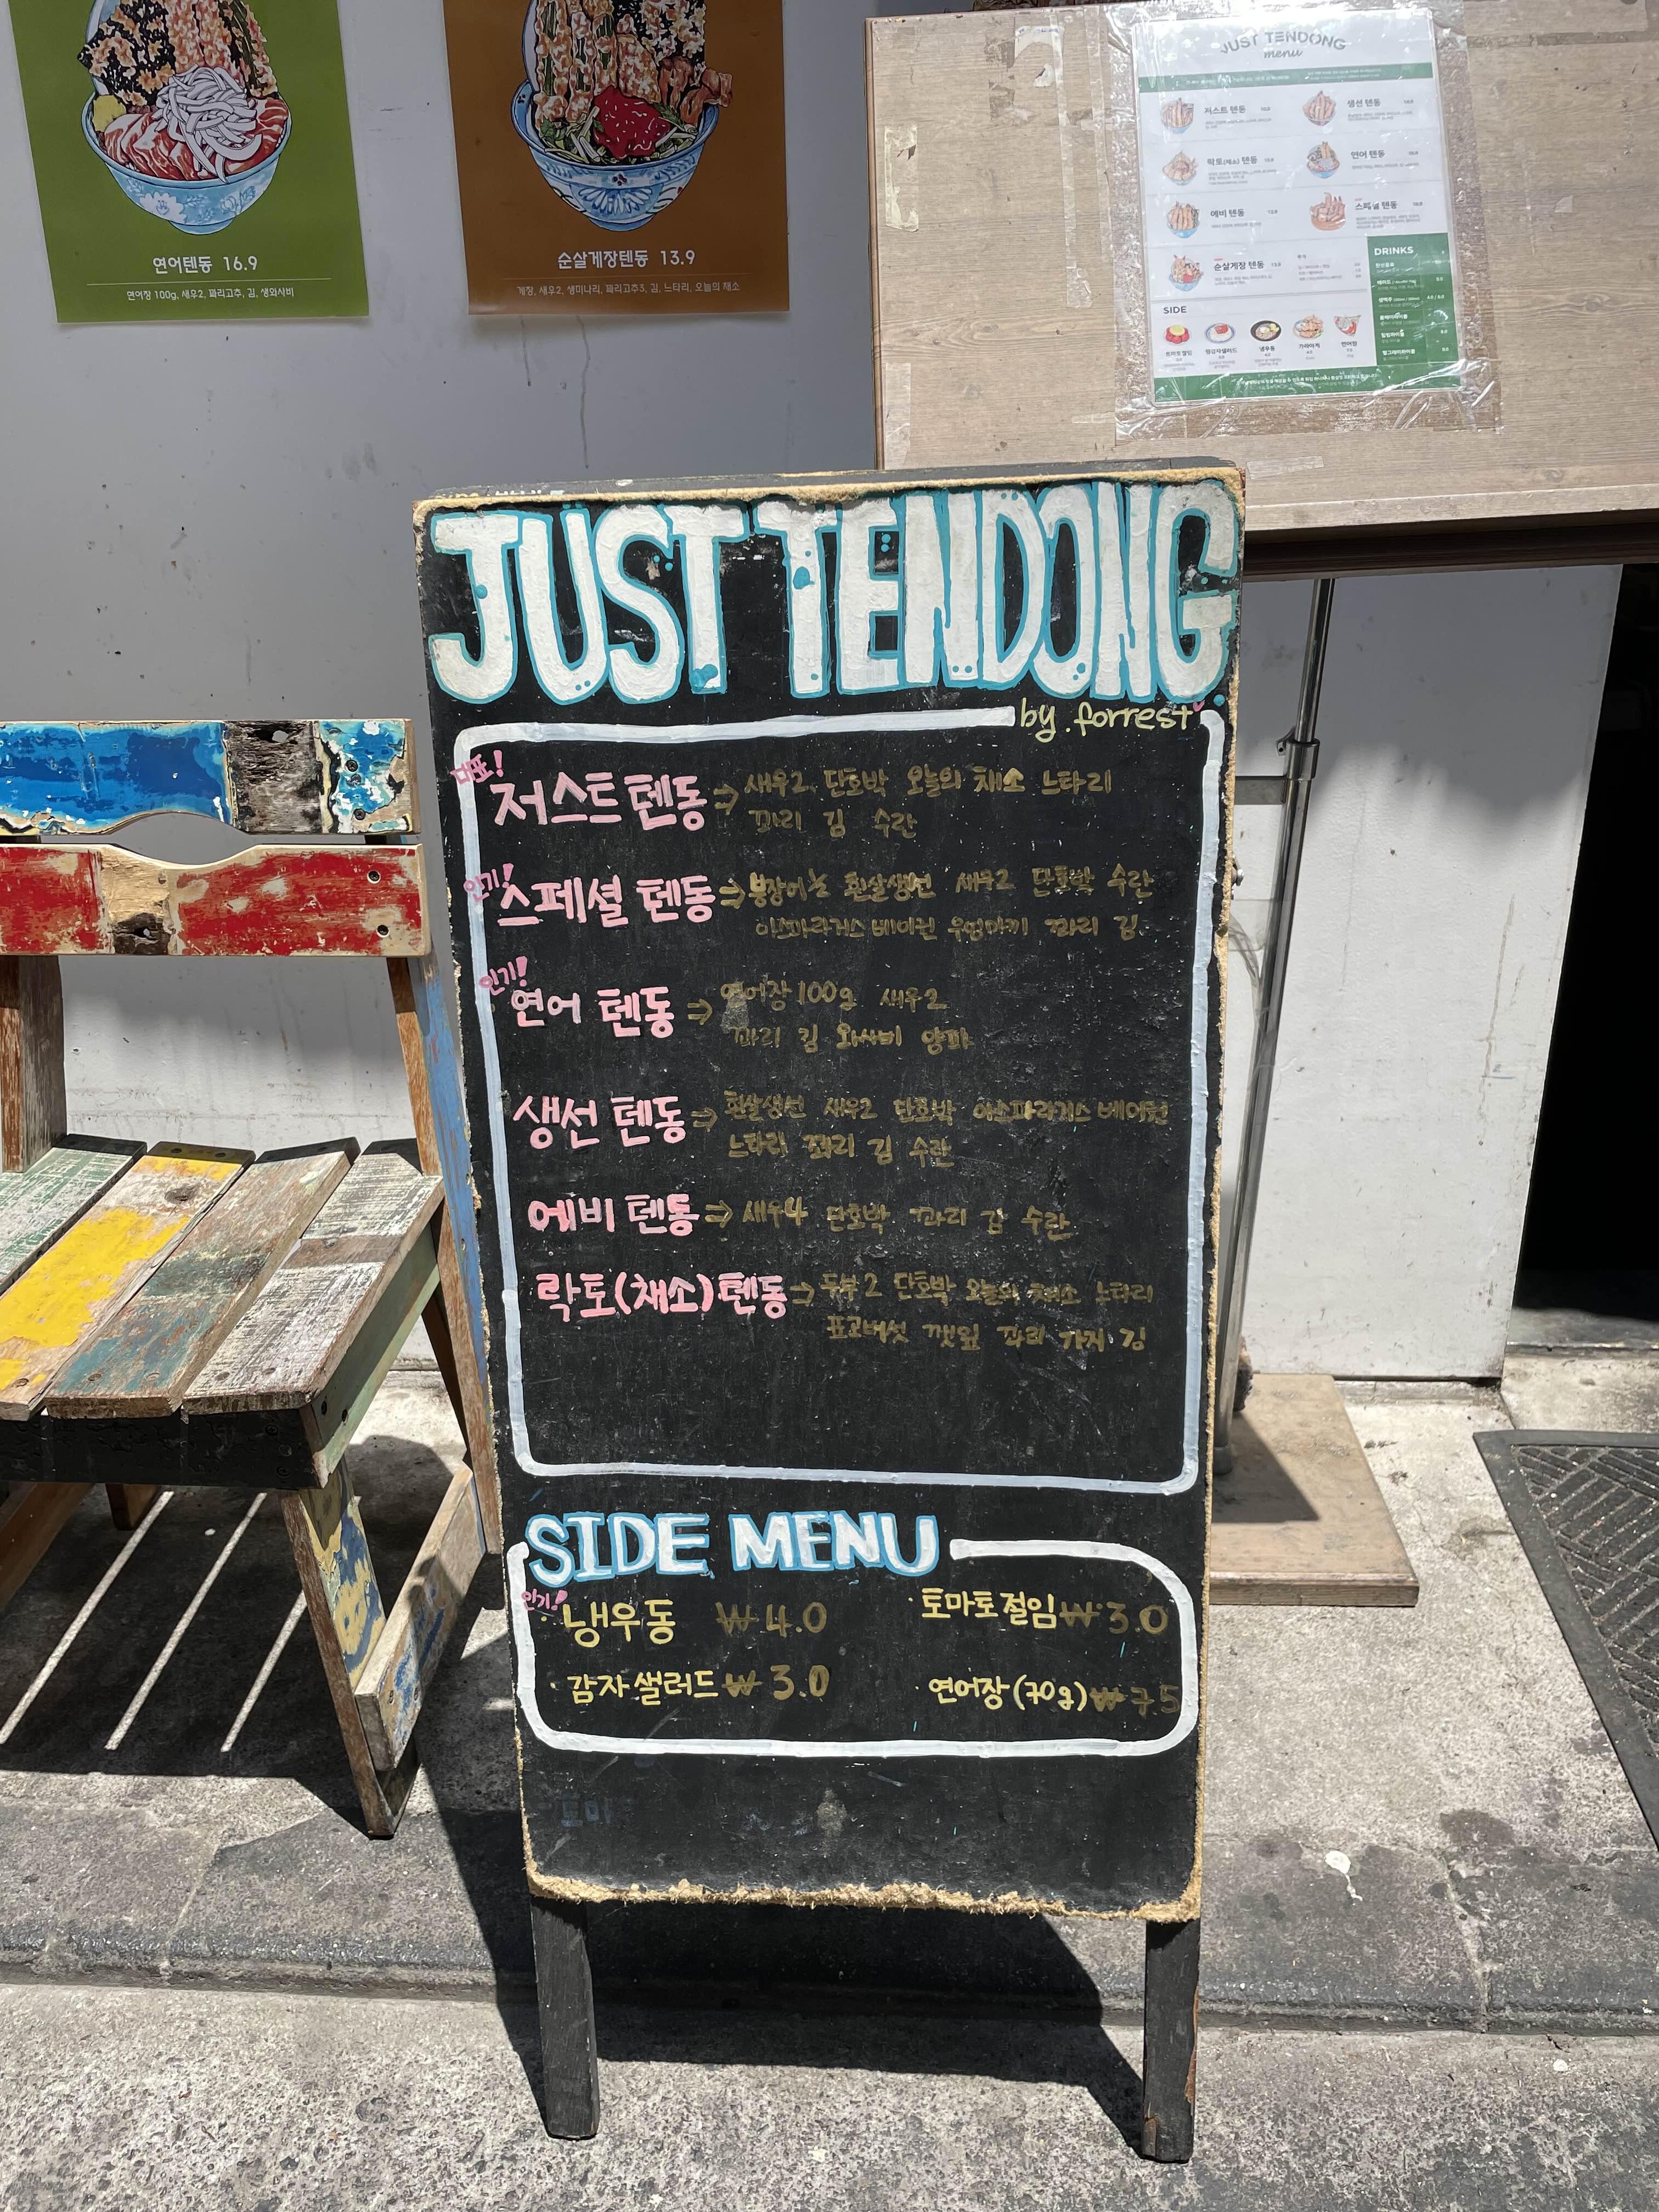 연어텐동 16.9
연어장 100g, 새우2, 꽈리고추, 김, 생와사비
순살게장텐동 13.9
게장, 새우2, 생미나리, 꽈리고추3, 김, 느타리, 오늘의 채소
JUST TENDONG
menu
저스트 텐동
생선 텐동
락토(채소) 텐동
연어 텐동
에비 텐동
스페셜 텐동
순살게장 텐동
DRINKS
SIDE
토마토절임
감자샐러드
냉우동
가라아게
연어장
JUST TENDONG
by.forrest
대표!
저스트 텐동 → 새우2 단호박 오늘의 채소 느타리
꽈리 김 수란
인기!
스페셜 텐동 → 붕장어½ 흰살생선 새우2 단호박 수란
아스파라거스 베이컨 우엉마끼 꽈리 김
인기!
연어 텐동 → 연어장 100g 새우2
꽈리 김 와사비 양파
생선 텐동 → 흰살생선 새우2 단호박 아스파라거스 베이컨
느타리 꽈리 김 수란
에비 텐동 → 새우4 단호박 꽈리 김 수란
락토(채소) 텐동 → 두부2 단호박 오늘의 채소 느타리
표고버섯 깻잎 꽈리 가지 김
SIDE MENU
인기!
·냉우동 ₩4.0
·토마토절임 ₩3.0
·감자샐러드 ₩3.0
·연어장(70g) ₩7.5
토마